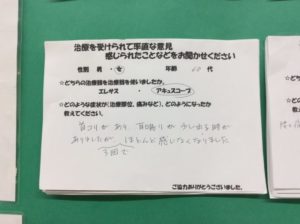 治療を受けられて率直な意見
感じられたことなどをお聞かせください
性別 男・女 年齢 60代
☆どちらの治療器を治療器を使いましたか。
エレサス アキュスコープ
☆どのような症状が(治療部位、痛みなど)、どのようになったか
教えてください。
首コリがあり、耳鳴りが少し出る時が
ありましたが、ほとんど感じなくなりました
3回で
ご協力ありがとうございました。